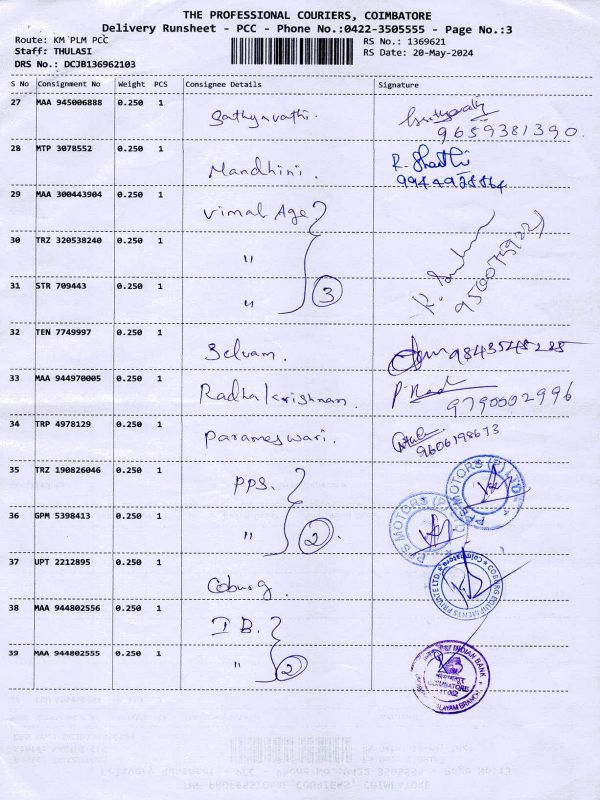 THE PROFESSIONAL COURIERS, COIMBATORE
Delivery Runsheet - PCC - Phone No.:0422-3505555 - Page No.:3
Route: KM PLM PCC
Staff: THULASI
DRS No.: DCJB136962103
RS No.: 1369621
RS Date: 20-May-2024
S No Consignment No Weight PCS Consignee Details Signature
27 MAA 945006888 0.250 1 Sathyavathi.
9659381390.
28 MTP 3078552 0.250 1 Mandhini. R. Shanthi
29 MAA 300443904 0.250 1 Vimal Age
30 TRZ 320538240 0.250 1 "
31 STR 709443 0.250 1 " 3
32 TEN 7749997 0.250 1 Selvam. 9843548288
33 MAA 944970005 0.250 1 Radhakrishnam.
9790002996
34 TRP 4978129 0.250 1 Parameswari.
9606198673
35 TRZ 190826046 0.250 1 PPS. PPS MOTORS (P) LTD
36 GPM 5398413 0.250 1 " 2. PPS MOTORS (P) LTD
37 UPT 2212895 0.250 1 Coburg. COBURG EQUIPMENTS PRIVATE LTD. Coimbatore
38 MAA 944802556 0.250 1 IB.
39 MAA 944802555 0.250 1 " 2 INDIAN BANK
COIMBATORE